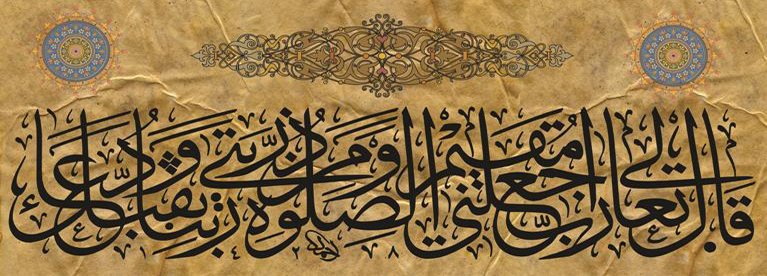 قال تعالى رب اجعلني مقيم الصلوة ومن ذريتي ربنا وتقبل دعاء